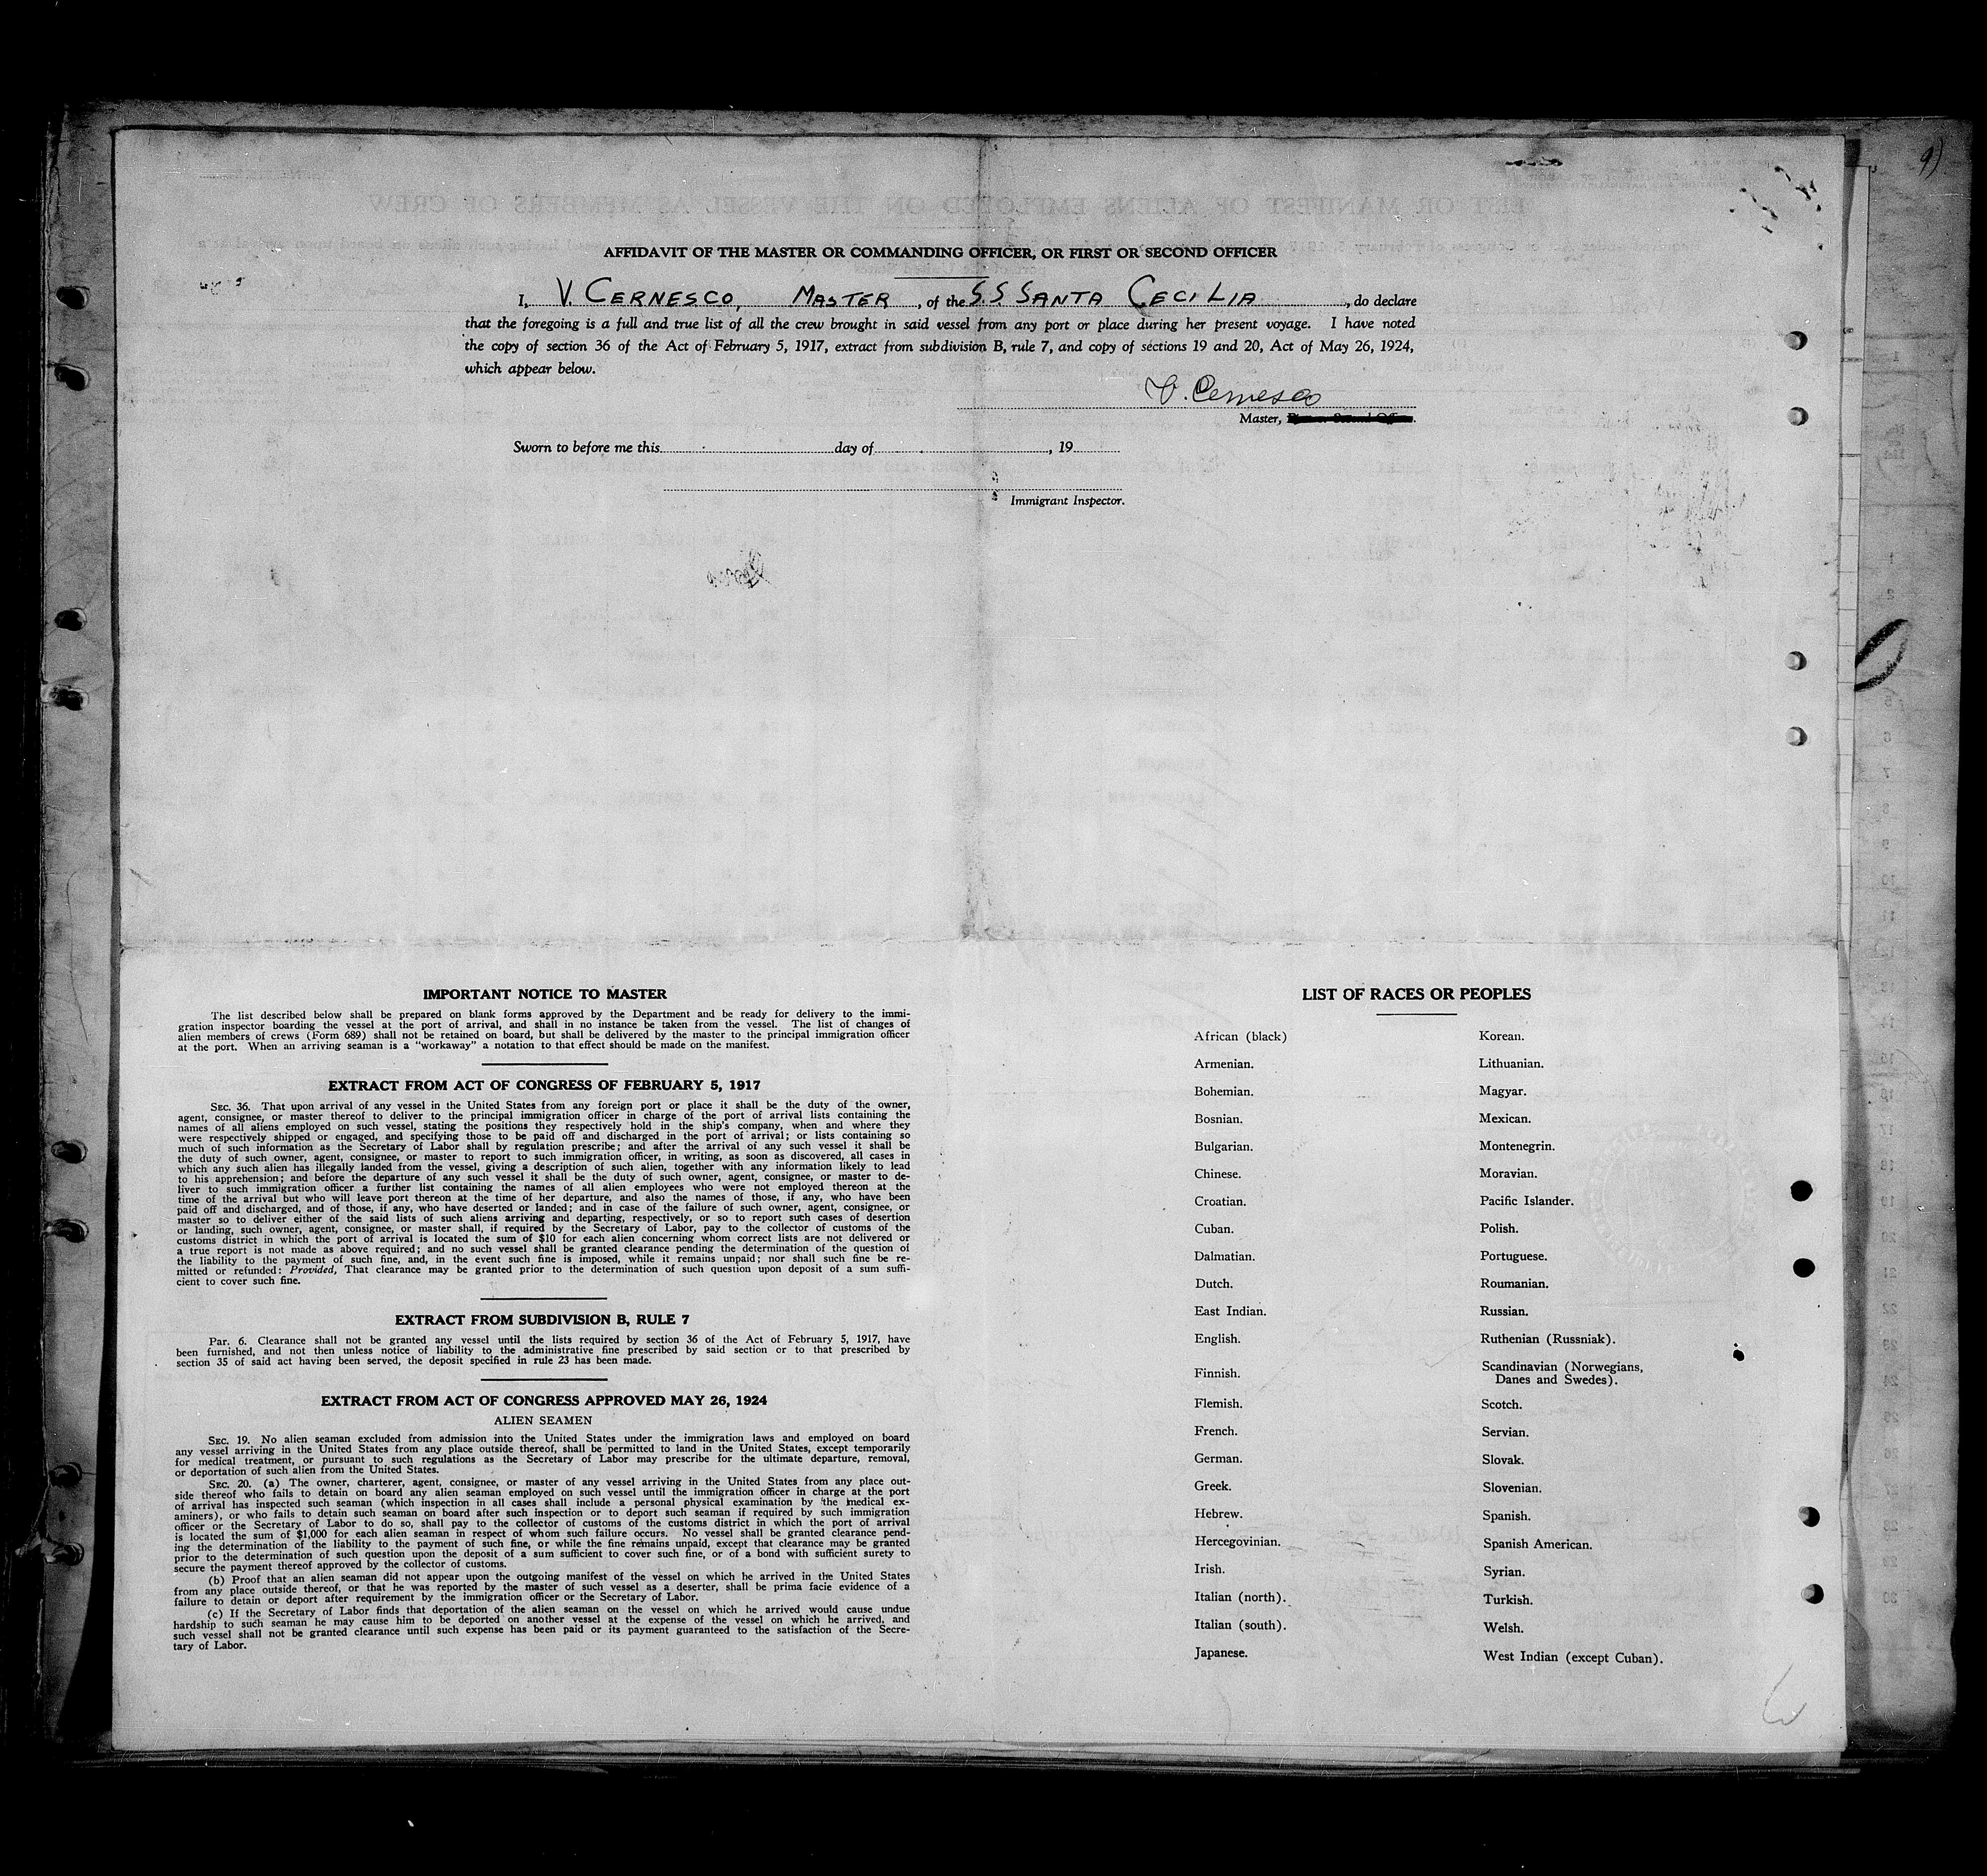 AFFIDAVIT OF THE MASTER OR COMMANDING OFFICER, OR FIRST OR SECOND OFFICER
I, V. CERNESCO, MASTER, of the S.S. SANTA CECILIA, do declare
that the foregoing is a full and true list of all the crew brought in said vessel from any port or place during her present voyage. I have noted
the copy of section 36 of the Act of February 5, 1917, extract from subdivision B, rule 7, and copy of sections 19 and 20, Act of May 26, 1924,
which appear below.
V. Cernesco
Master,
Sworn to before me this day of , 19
Immigrant Inspector.
IMPORTANT NOTICE TO MASTER
The list described below shall be prepared on blank forms approved by the Department and be ready for delivery to the immi-
gration inspector boarding the vessel at the port of arrival, and shall in no instance be taken from the vessel. The list of changes of
alien members of crews (Form 689) shall not be retained on board, but shall be delivered by the master to the principal immigration officer
at the port. When an arriving seaman is a "workaway" a notation to that effect should be made on the manifest.
EXTRACT FROM ACT OF CONGRESS OF FEBRUARY 5, 1917
SEC. 36. That upon arrival of any vessel in the United States from any foreign port or place it shall be the duty of the owner,
agent, consignee, or master thereof to deliver to the principal immigration officer in charge of the port of arrival lists containing the
names of all aliens employed on such vessel, stating the positions they respectively hold in the ship's company, when and where they
were respectively shipped or engaged, and specifying those to be paid off and discharged in the port of arrival; or lists containing so
much of such information as the Secretary of Labor shall by regulation prescribe; and after the arrival of any such vessel it shall be
the duty of such owner, agent, consignee, or master to report to such immigration officer, in writing, as soon as discovered, all cases in
which any such alien has illegally landed from the vessel, giving a description of such alien, together with any information likely to lead
to his apprehension; and before the departure of any such vessel it shall be the duty of such owner, agent, consignee, or master to de-
liver to such immigration officer a further list containing the names of all alien employees who were not employed thereon at the
time of the arrival but who will leave port thereon at the time of her departure, and also the names of those, if any, who have been
paid off and discharged, and of those, if any, who have deserted or landed; and in case of the failure of such owner, agent, consignee, or
master so to deliver either of the said lists of such aliens arriving and departing, respectively, or so to report such cases of desertion
or landing, such owner, agent, consignee, or master shall, if required by the Secretary of Labor, pay to the collector of customs of the
customs district in which the port of arrival is located the sum of $10 for each alien concerning whom correct lists are not delivered or
a true report is not made as above required; and no such vessel shall be granted clearance pending the determination of the question of
the liability to the payment of such fine, and, in the event such fine is imposed, while it remains unpaid; nor shall such fine be re-
mitted or refunded: Provided, That clearance may be granted prior to the determination of such question upon deposit of a sum suffi-
cient to cover such fine.
EXTRACT FROM SUBDIVISION B, RULE 7
PAR. 6. Clearance shall not be granted any vessel until the lists required by section 36 of the Act of February 5, 1917, have
been furnished, and not then unless notice of liability to the administrative fine prescribed by said section or to that prescribed by
section 35 of said act having been served, the deposit specified in rule 23 has been made.
EXTRACT FROM ACT OF CONGRESS APPROVED MAY 26, 1924
ALIEN SEAMEN
SEC. 19. No alien seaman excluded from admission into the United States under the immigration laws and employed on board
any vessel arriving in the United States from any place outside thereof, shall be permitted to land in the United States, except temporarily
for medical treatment, or pursuant to such regulations as the Secretary of Labor may prescribe for the ultimate departure, removal,
or deportation of such alien from the United States.
SEC. 20. (a) The owner, charterer, agent, consignee, or master of any vessel arriving in the United States from any place out-
side thereof who fails to detain on board any alien seaman employed on such vessel until the immigration officer in charge at the port
of arrival has inspected such seaman (which inspection in all cases shall include a personal physical examination by the medical ex-
aminers), or who fails to detain such seaman on board after such inspection or to deport such seaman if required by such immigration
officer or the Secretary of Labor to do so, shall pay to the collector of customs of the customs district in which the port of arrival
is located the sum of $1,000 for each alien seaman in respect of whom such failure occurs. No vessel shall be granted clearance pend-
ing the determination of the liability to the payment of such fine, or while the fine remains unpaid, except that clearance may be granted
prior to the determination of such question upon the deposit of a sum sufficient to cover such fine, or of a bond with sufficient surety to
secure the payment thereof approved by the collector of customs.
(b) Proof that an alien seaman did not appear upon the outgoing manifest of the vessel on which he arrived in the United States
from any place outside thereof, or that he was reported by the master of such vessel as a deserter, shall be prima facie evidence of a
failure to detain or deport after requirement by the immigration officer or the Secretary of Labor.
(c) If the Secretary of Labor finds that deportation of the alien seaman on the vessel on which he arrived would cause undue
hardship to such seaman he may cause him to be deported on another vessel at the expense of the vessel on which he arrived, and
such vessel shall not be granted clearance until such expense has been paid or its payment guaranteed to the satisfaction of the Secre-
tary of Labor.
LIST OF RACES OR PEOPLES
African (black)
Armenian.
Bohemian.
Bosnian.
Bulgarian.
Chinese.
Croatian.
Cuban.
Dalmatian.
Dutch.
East Indian.
English.
Finnish.
Flemish.
French.
German.
Greek.
Hebrew.
Hercegovinian.
Irish.
Italian (north).
Italian (south).
Japanese.
Korean.
Lithuanian.
Magyar.
Mexican.
Montenegrin.
Moravian.
Pacific Islander.
Polish.
Portuguese.
Roumanian.
Russian.
Ruthenian (Russniak).
Scandinavian (Norwegians,
Danes and Swedes).
Scotch.
Servian.
Slovak.
Slovenian.
Spanish.
Spanish American.
Syrian.
Turkish.
Welsh.
West Indian (except Cuban).